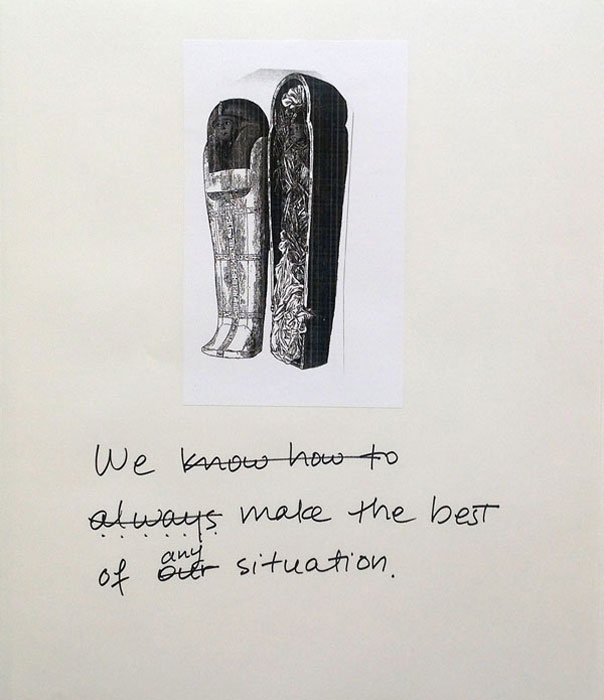 We know how to
always make the best
any
of our situation.